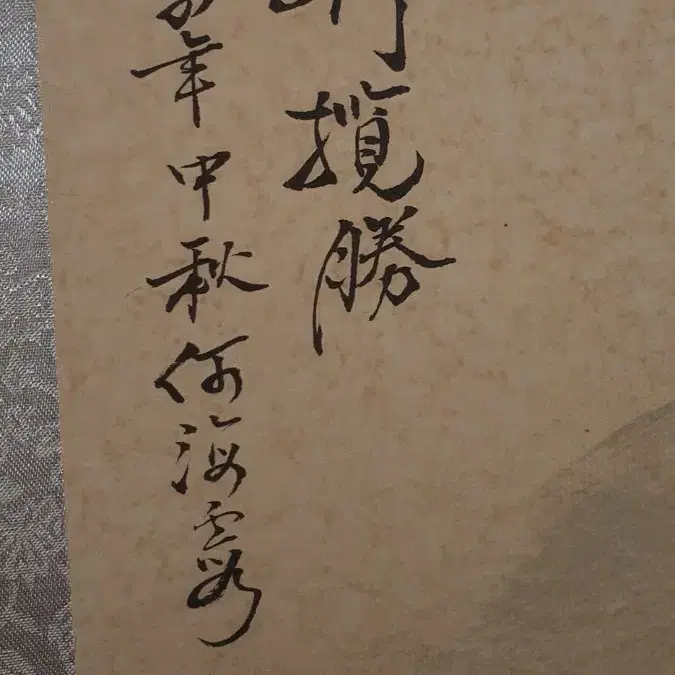 攬勝
年中秋何海霞